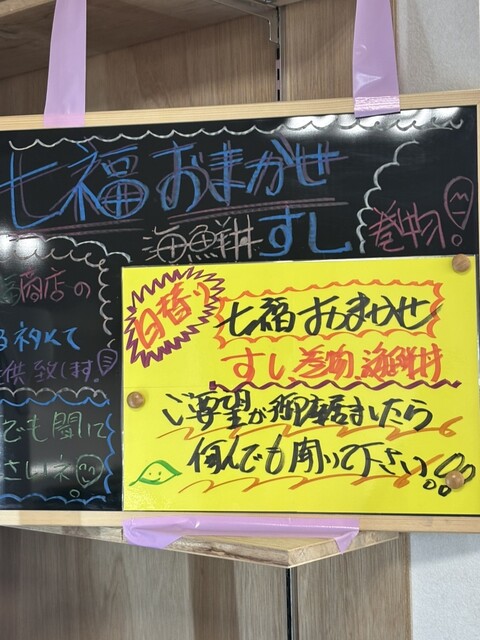 七福おまかせ
海鮮丼 すし 巻物!
商店の
ネタにて
供致します!
でも聞いて
さいネ
日替り
七福おまかせ
すし、巻物、海鮮丼
ご要望が御座居ましたら
何んでも聞いて下さい!!